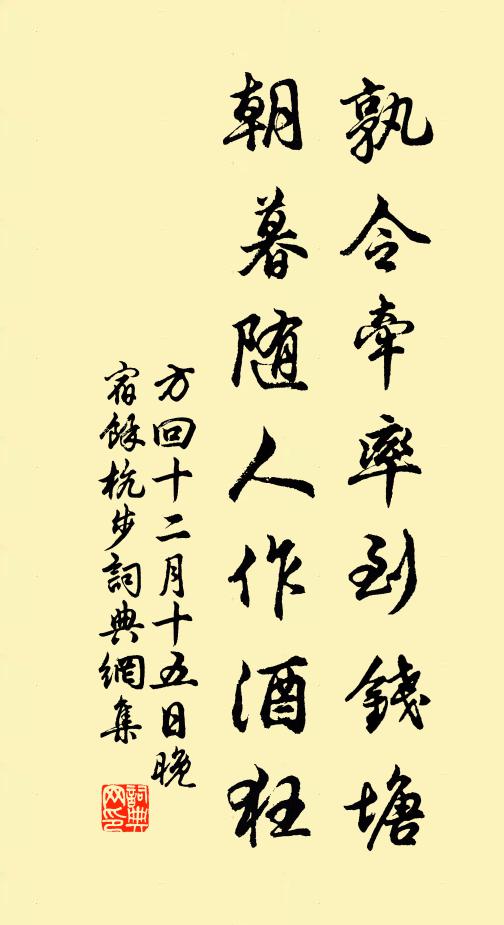 孰令牽率到錢塘
朝暮随人作酒狂
方回十二月十五日晚
宿餘杭步詞典網集
詞典网印